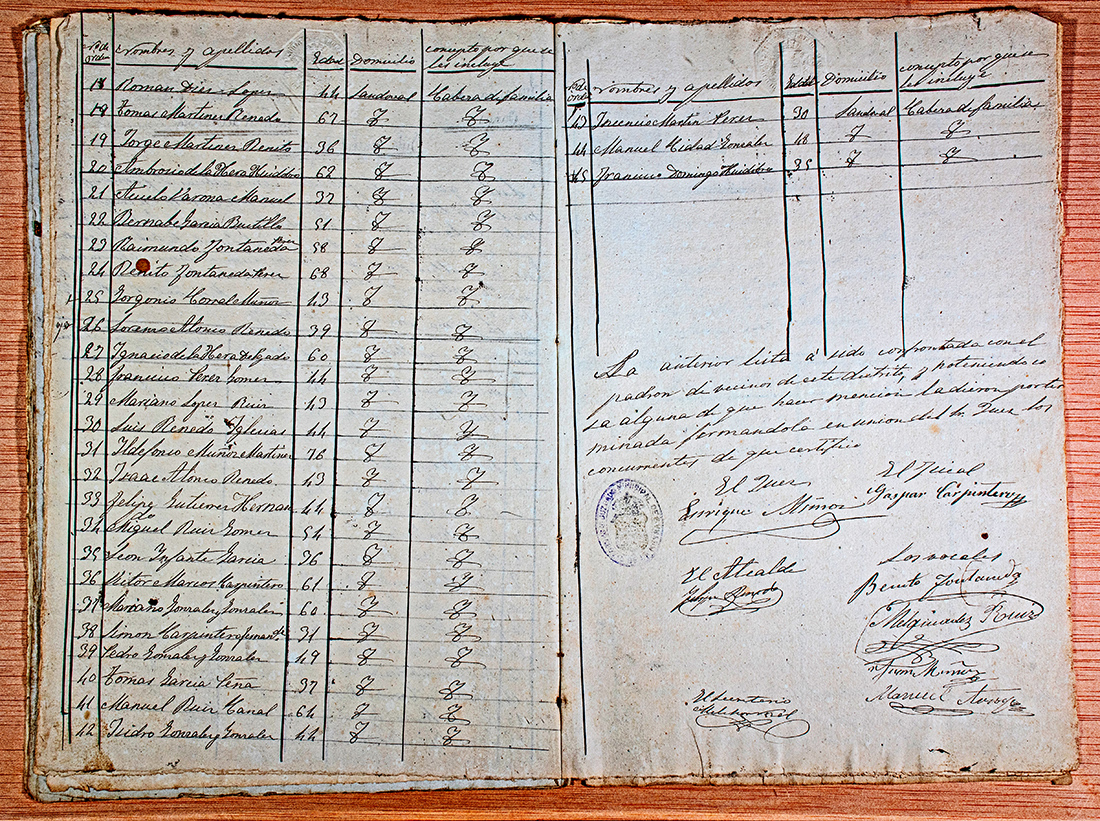 Nº de orden Nombres y apellidos Edad Domicilio concepto por que se les incluye
18 Roman Diez Lopez 44 Sandoval Cabeza de familia
18 Tomas Martinez Renedo 67 " "
19 Jorge Martinez Benito 36 " "
20 Ambrosio de la Hera Huidobro 62 " "
21 Varona Manuel 37 " "
22 Bernabe Garcia Bustillo 51 " "
23 Raimundo Fontaneda Perez 58 " "
24 Benito Fontaneda Perez 68 " "
25 Gorgonio Corral Muñoz 43 " "
26 Lorenzo Alonso Renedo 39 " "
27 Ignacio de la Hera Delgado 60 " "
28 Francisco Perez Gomez 44 " "
29 Mariano Lopez Ruiz 43 " "
30 Luis Renedo Yglesias 44 " "
31 Ildefonso Muñoz Martinez 76 " "
32 Isaac Alonso Renedo 43 " "
33 Felipe Gutierrez Hernan 44 " "
34 Miguel Ruiz Gomez 54 " "
35 Leon Infante Garcia 36 " "
36 Marcos Carpintero 61 " "
37 Mariano Gonzalez y Gonzalez 60 " "
38 Simon Carpintero Fernandz 31 " "
39 Pedro Gonzalez y Gonzalez 49 " "
40 Tomas Garcia Peña 37 " "
41 Manuel Ruiz Canal 64 " "
42 Isidro Gonzalez y Gonzalez 44 " "
Nº de orden Nombres y apellidos Edad Domicilio concepto por que se les incluye
43 Inocencio Martin Perez 30 Sandoval Cabeza de familia
44 Manuel Cidad Gonzalez 48 " "
45 Francisco Domingo Huidobro 35 " "
La anterior lista á sido confrontada con el
padron de vecinos de este distrito, y no teniendo co
sa alguna de que hacer mencion la dieron por ter
minada firmandola en union del Sr Juez los
concurrentes de que certifico
El Juez
Enrique Muñoz
El Fiscal
Gaspar Carpintero
El Alcalde
Los vocales
Benito Fontaneda
Melquiadez Ruiz
Juan Muñoz
Manuel Arroyo
El Secretario